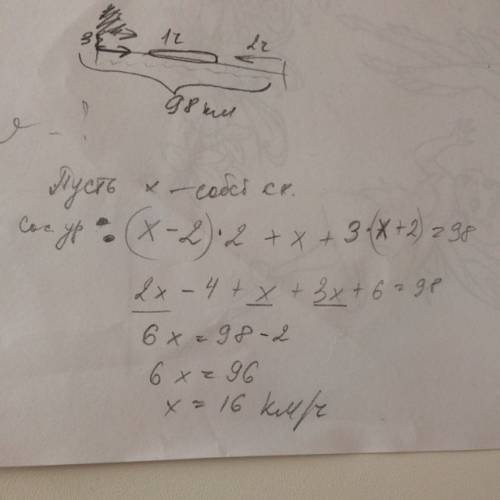 3ч 1ч 2ч
98 км
Пусть x – собст ск.
(x-2)·2 + x + 3·(x+2) = 98
2x - 4 + x + 3x + 6 = 98
6x = 98 - 2
6x = 96
x = 16 км/ч